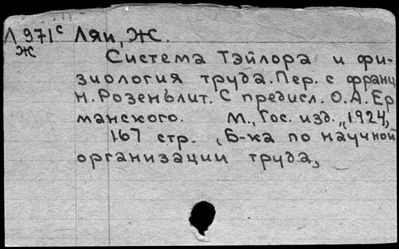 Л 971с Ляи, Ж.
Ж
Система Тэйлора и фи-
зиология труда. Пер. с франц
Н. Розенблит. С предисл. О.А. Ер
манского. М., Гос. изд., 1924,
167 стр. , Б-ка по научной
организации труда,